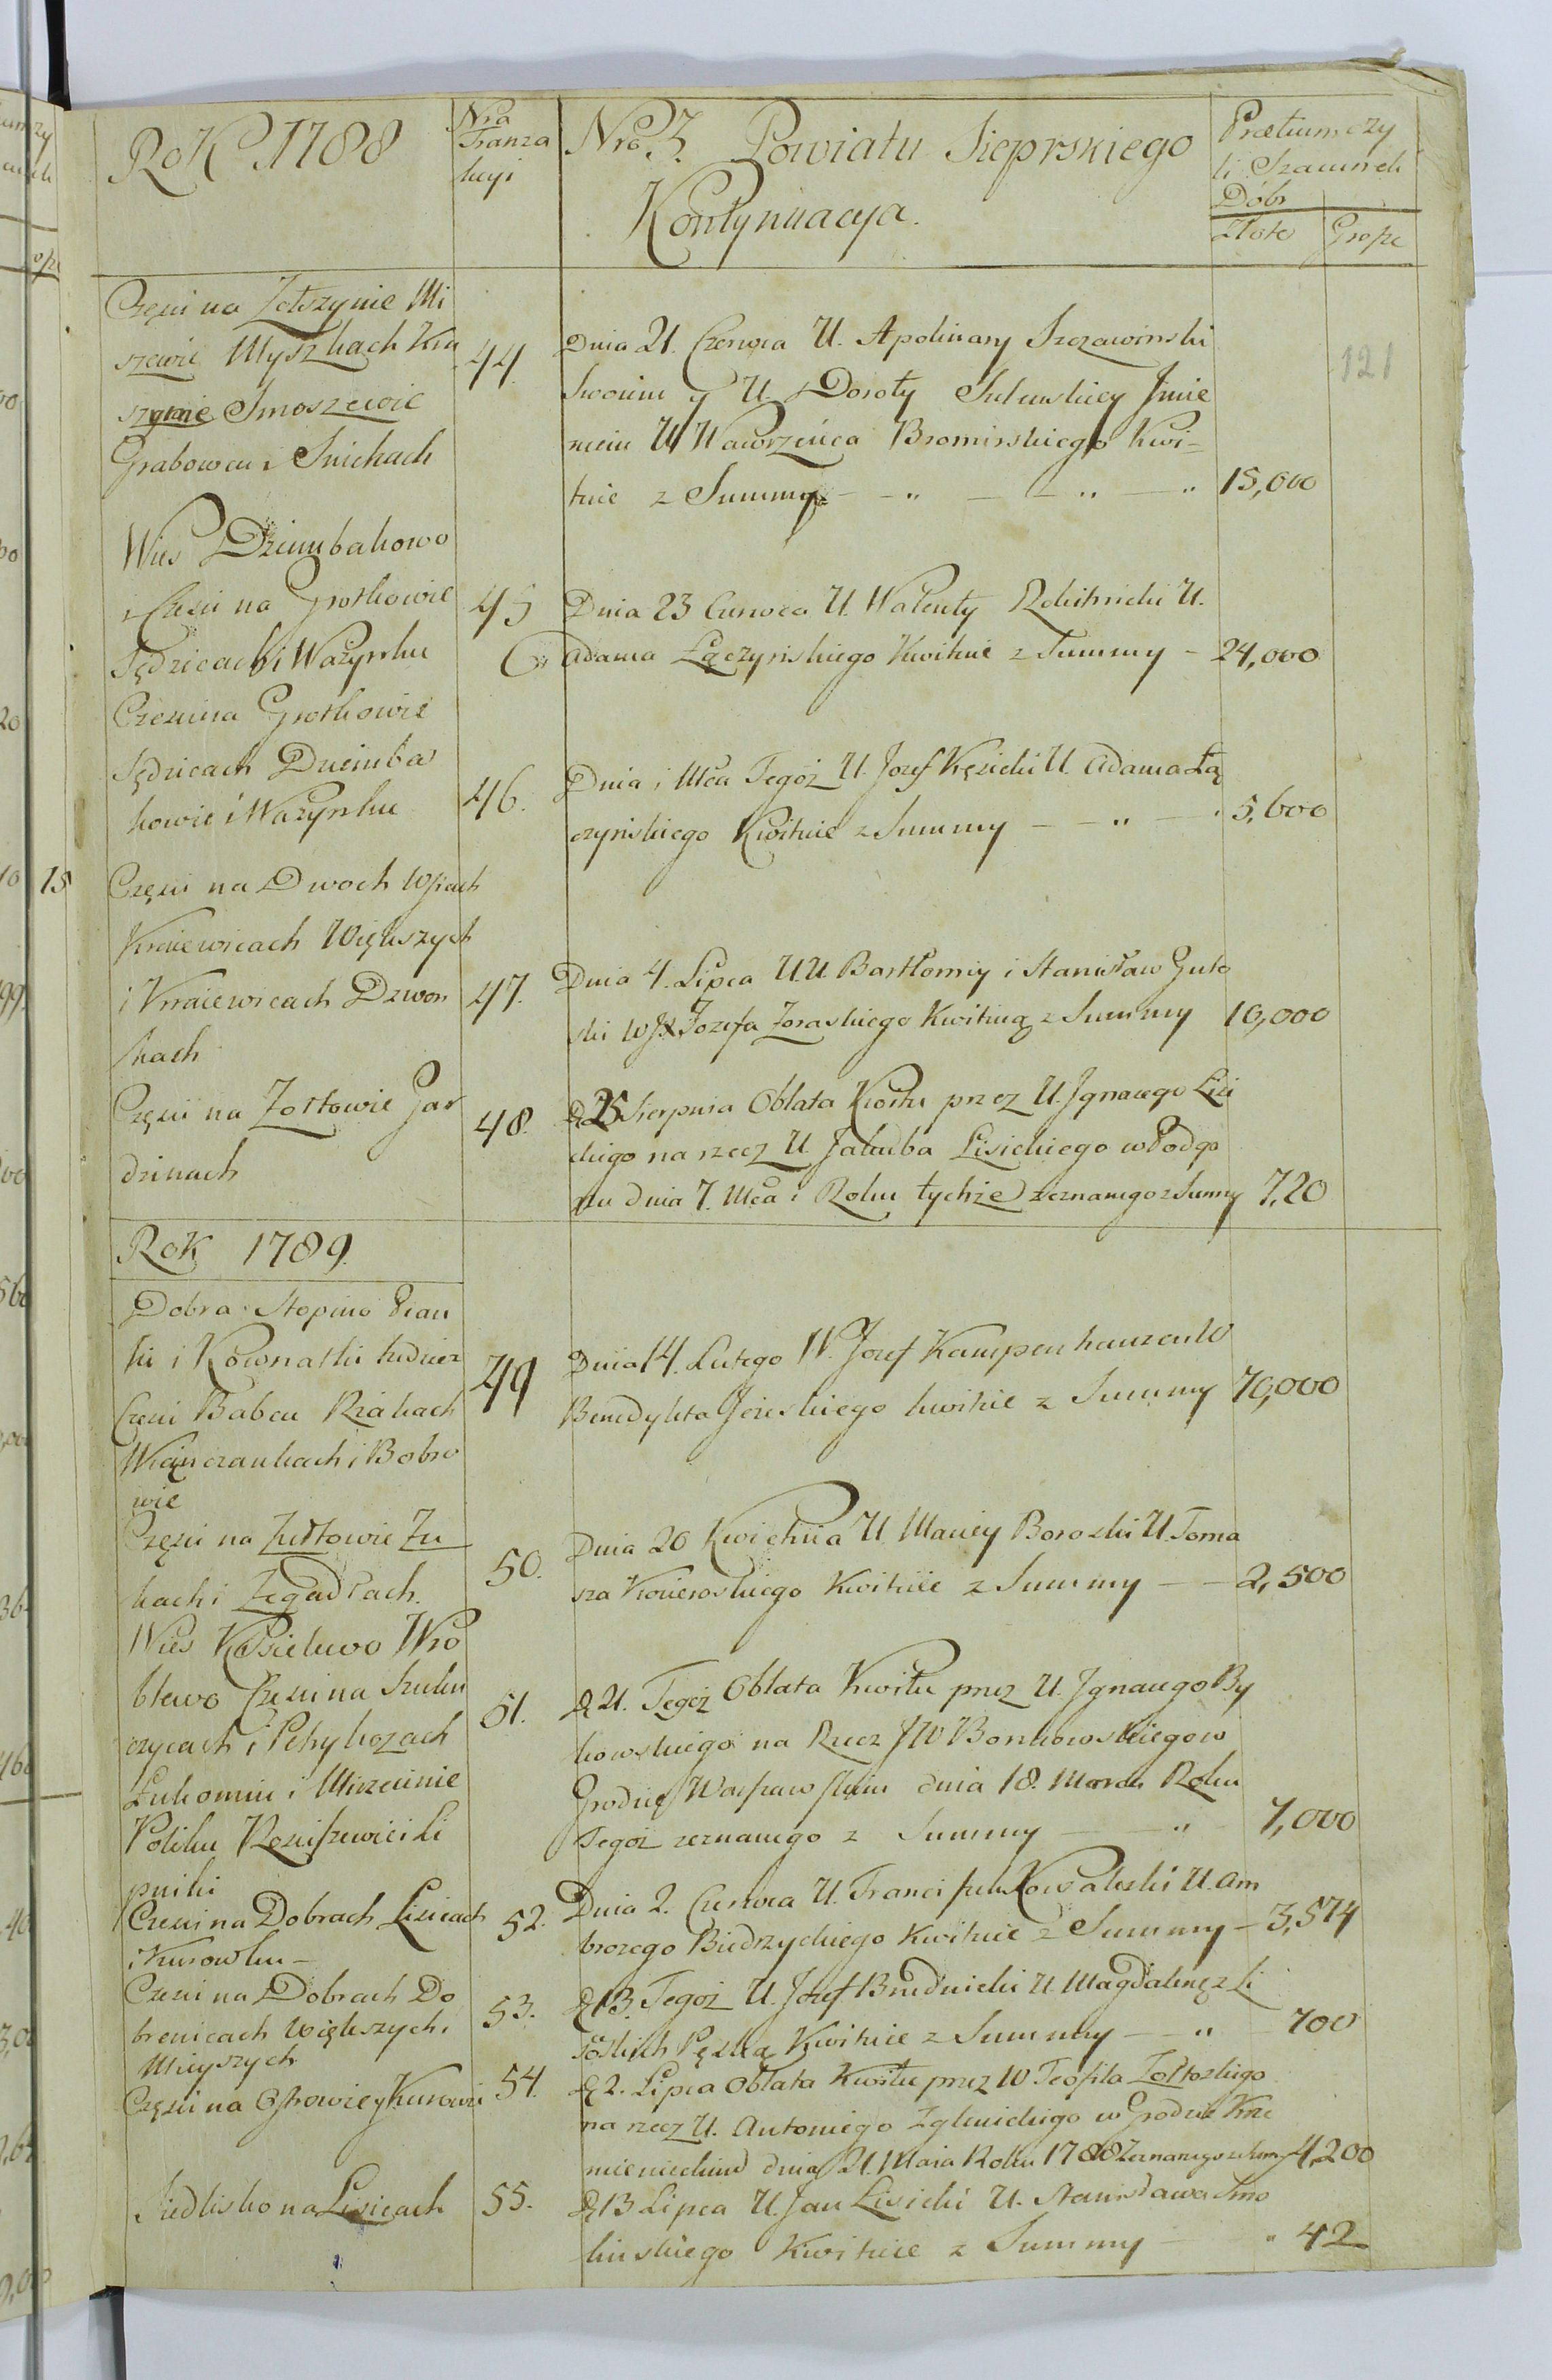 Rok 1788
Nra
Tranza
kcyi
Nro 3. Powiatu Sieprskiego
Kontynuacya.
Praetium czy
li Szacunek
Dóbr
Złote Grosze
121
Części na Zołszynie Mi
szewie Myszkach Kra
szynie Smoszewie
Grabowcu i Snichach
44
Dnia 21. Czerwca U. Apolinary Szczawinski
Swoim y U. Doroty Sulewskiey Jmie
niem U Wawrzeńca Bromirskiego Kwi=
tuie z Summy 15,000
Wies Dziembakowo
i Części na Grotkowie
Sędzicach i Ważynku
45
Dnia 23 Czerwca U. Walenty Rokitnicki U.
Adama Łączyńskiego Kwituie z Summy - 24,000
Części na Grotkowie
Sędzicach Dziemba
kowie i Ważynku
46.
Dnia i Mca Tegoż U. Jozef Kęsicki U. Adama Łą
czyńskiego Kwituie z Summy 5,600
15
Części na Dwoch Wsiach
Kraiewicach Większych
i Kraiewicach Dzwon
kach
47.
Dnia 4. Lipca U.U. Bartłomiy i Stanisław Guto
ski Jozefa Zoraskiego Kwituią z Summy 10,000
Części na Zołtowie Gar
dzinach
48.
D 25 Sierpnia Oblata Kwitu przez U. Jgnacego Lisi
ckiego na rzecz U. Jakuba Lisickiego w Podgo
rzu dnia 7. Mca i Roku tychże zeznanego z Sumy 7,20
Rok 1789.
Dobra Stopino Pian
ki i Kownatki tudziez
Części Babcu Rżakach
Wianczankach i Bobro
wie
49
Dnia 14. Lutego W. Jozef Kampenhauzen W
Benedykta Jezeskiego kwituie z Summy 70,000
Części na Zułtowie Zu
kach i Zegadłach.
50.
Dnia 20 Kwietnia U. Maciey Boroski U. Toma
sza Koszeroskiego Kwituie z Summy - 2,500
Wies Kosielewo Wro
blewo Części na Szulm
czycach i Petrykozach
Łukomiu i Mirzeninie
Poliku Rosiszewie i Li
pniki
51.
D 21. Tegoż Oblata Kwitu przez U. Jgnacego By
kowskiego na Rzecz JW Bonkowskiego w
Grodzie Warszawskim dnia 18. Marca Roku
Tegoż zeznanego z Summy 7,000
Części na Dobrach Lisicach
i Kurowku -
52.
Dnia 2. Czerwca U. Franciszek Kowaleski U. Am
brozego Biedrzyckiego Kwituie z Summy - 3,574
Części na Dobrach Do
brenicach Większych i
Mnieyszych
53.
D 13. Tegoż U. Jozef Brudnicki U. Magdalenę z Li
soskich Pęską Kwituie z Summy 700
Części na Ostrowie y Kurowie
54.
D 2. Lipca Oblata Kwitu przez W Teofila Zołtoskigo
na rzecz U. Antoniego Zglenickigo w Grodzie Krze
mienieckim dnia 21. Maia Roku 1788 Zeznanego z Sumy 4,200
Siedlisko na Lisicach
55.
D 13 Lipca U. Jan Lisicki U. Stanisława Smo
linskiego Kwituie z Summy 42